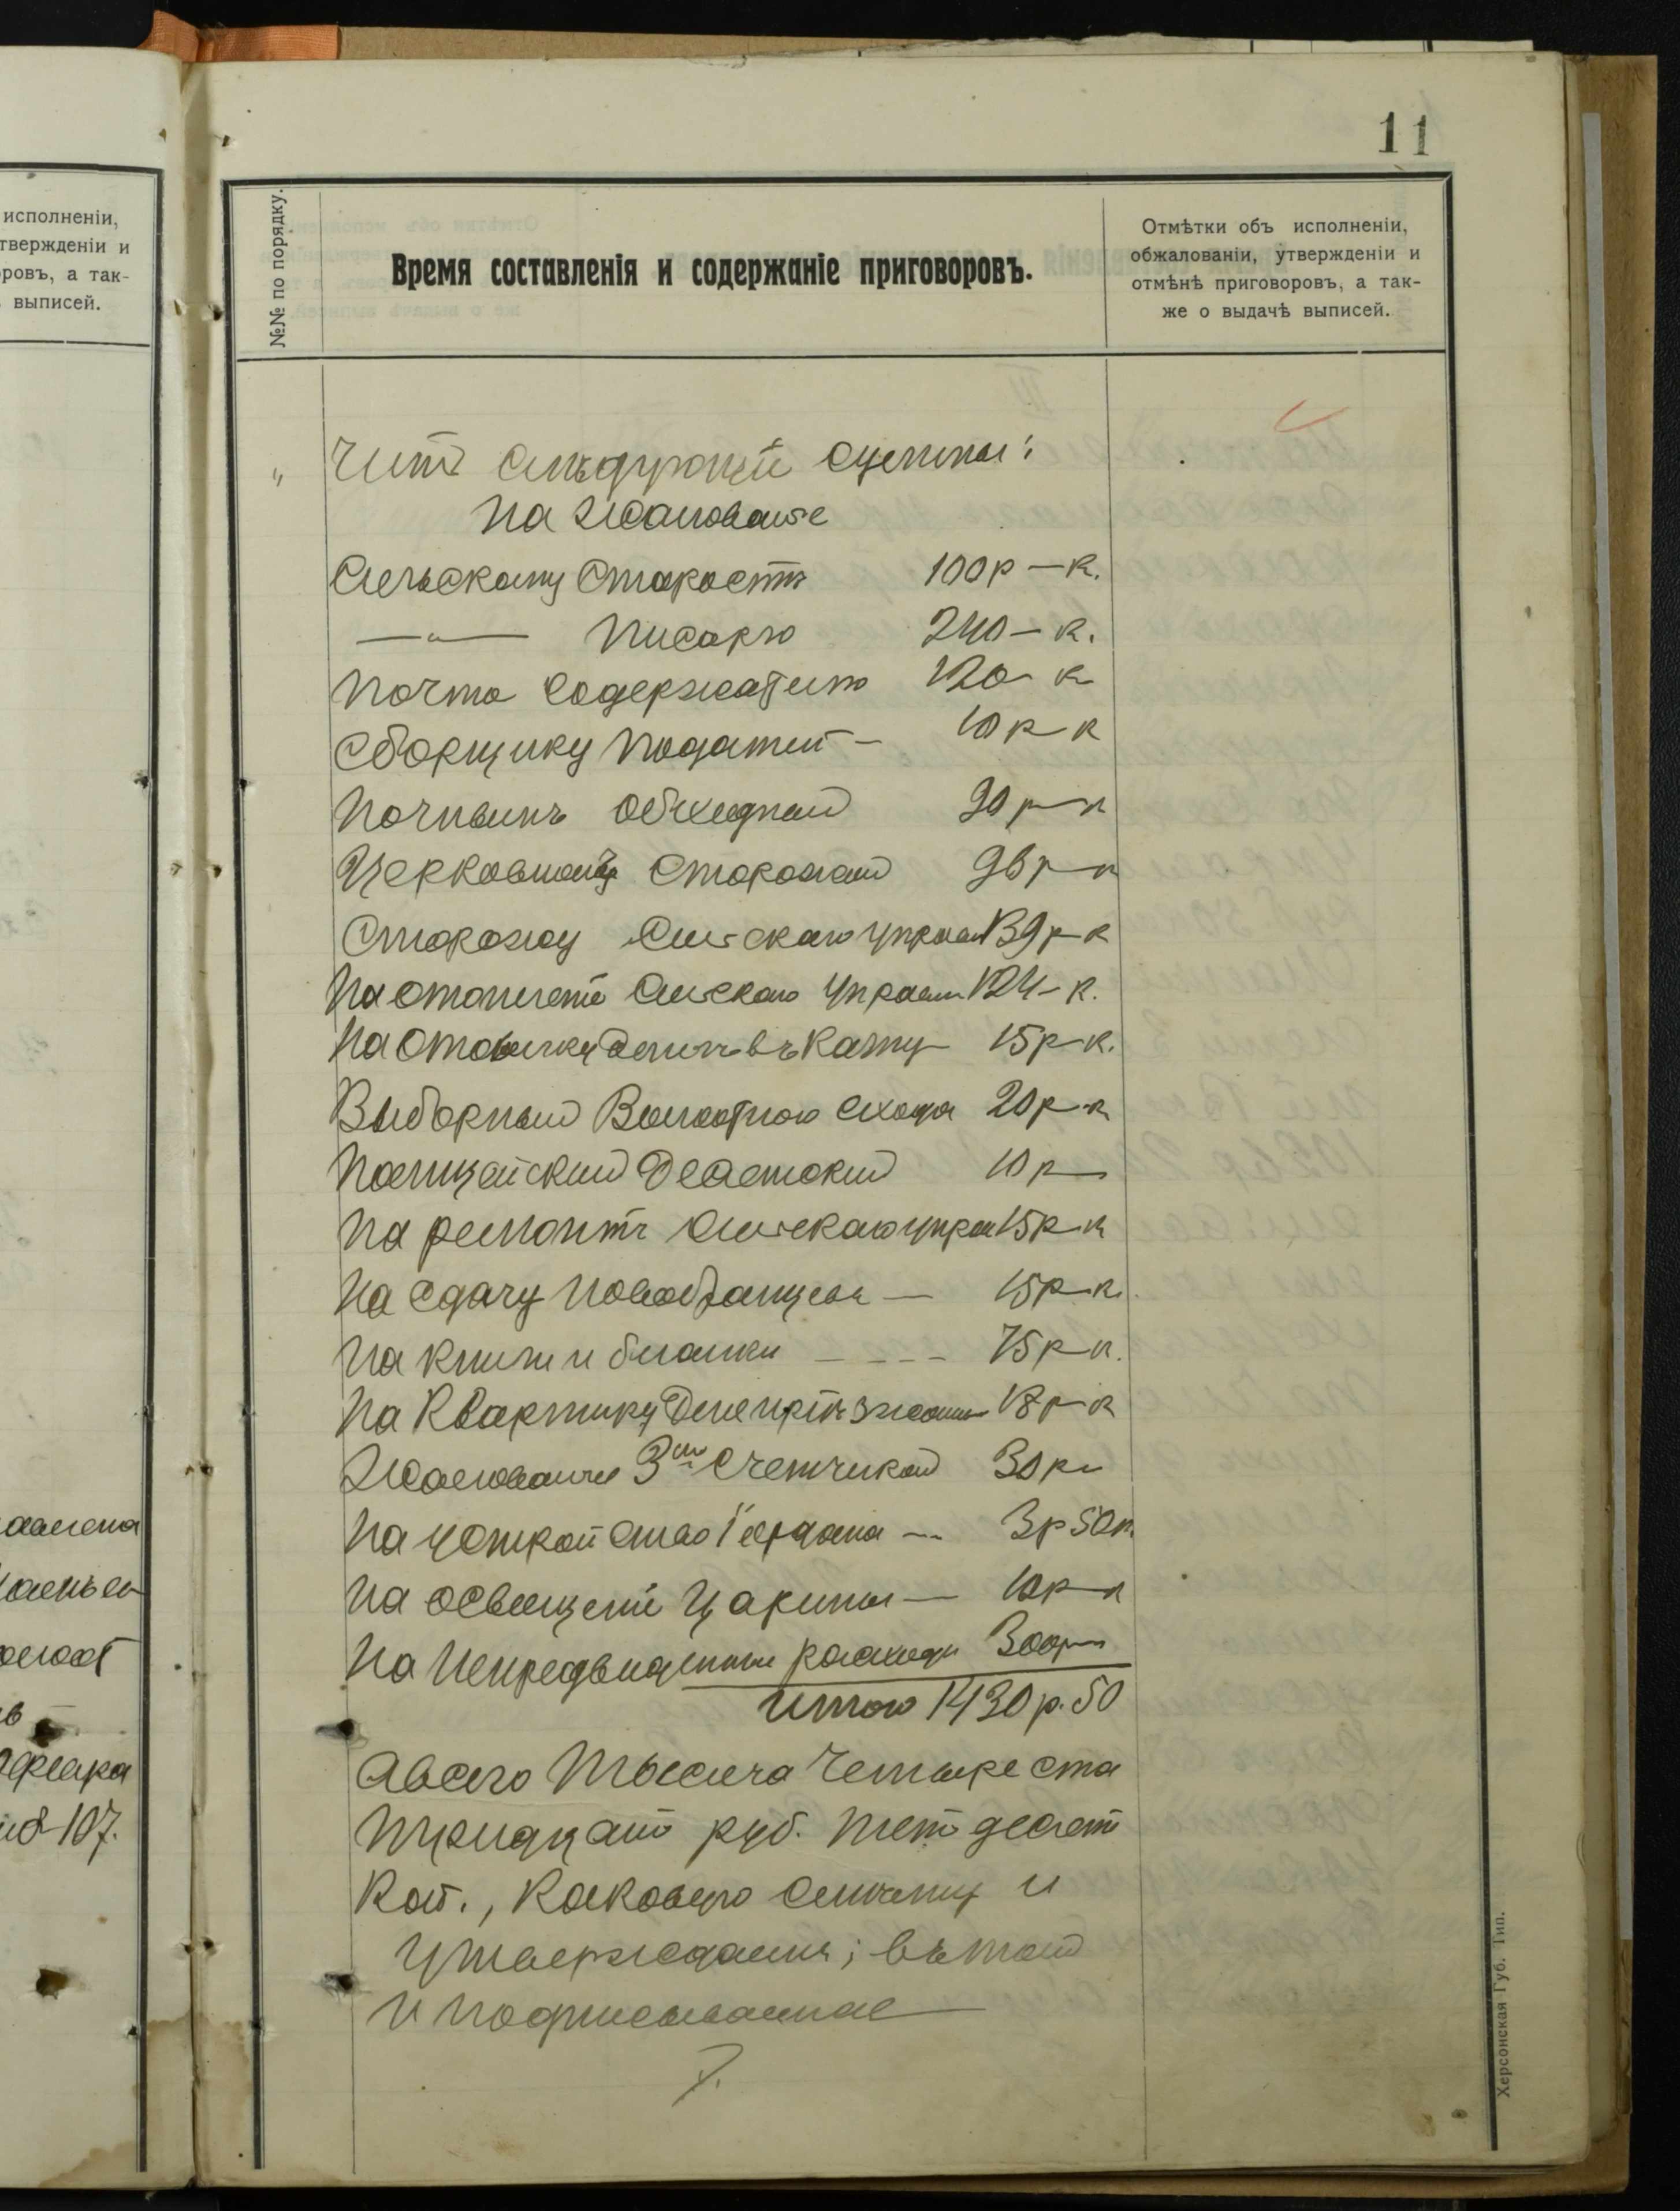 исполненіи,
твержденіи и
ровъ, а так-
выписей.
107.
11
№№ по порядку.
Время составленія и содержаніе приговоровъ.
Отмѣтки объ исполненіи,
обжалованіи, утвержденіи и
отмѣнѣ приговоровъ, а так-
же о выдачѣ выписей.
На Жалованье
Сельскому Старостѣ 100 р — к.
— " — Писарю 240 — к.
Почто Содержателю 120 к
Сборщику Податей — 10 р к
90 р — к
Церковному Сторожам 96 р — к
Сторожу Сельскаго управл 139 р — к
На отопленіе Сельскаго Управл. 124 — к.
На въ Казну 15 р — к.
Выборным Волостного Схода 20 р — к
Полицейским Десятским 10 р —
На ремонтъ Сельскаго управ 15 р — к
На сдачу Новобранцевъ — 15 р — к.
На книги и бланки — — — 75 р — к.
На Квартиру для 18 р — к
Жалованье 3м Счетчикам 30 р —
На 3 р 50 к.
На освещеніе Царины — 10 р — к
На Непредвиденные расходы 300 р —
Итого 1430 р. 50
А всего Тысяча Четыре ста
Тридцать руб. Пет десят
Коп., каковую Смету и
Утверждаем; въ том
и подписываемся
Херсонская Губ. Тип.